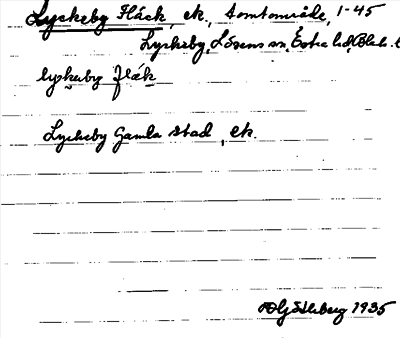 Lyckeby Fläck, ek., tomtområde, 1-45
Lyckeby, Lösens sn, Östra hd, Blek. l.
lyskəby flæk
Lyckeby Gamla stad, ek.
Göthberg 1935